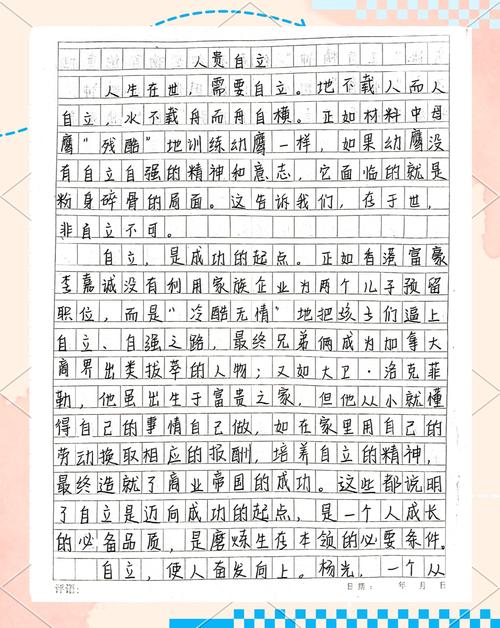 人贵自立
人生在世，需要自立。地不载人而人
自立，水不载舟而舟自横。正如材料中母
鹰“残酷”地训练幼鹰一样，如果幼鹰没
有自立自强的精神和意志，它面临的就是
粉身碎骨的局面。这告诉我们，在于世，
非自立不可。
自立，是成功的起点。正如香港富豪
李嘉诚没有利用家族企业为两个儿子预留
职位，而是“冷酷无情”地把孩子们逼上
自立、自强之路，最终兄弟俩成为加拿大
商界出类拔萃的人物；又如大卫·洛克菲
勒，他虽出生于富贵之家，但他从小就懂
得自己的事情自己做，如在家里用自己的
劳动换取相应的报酬，培养自立的精神，
最终造就了商业帝国的成功。这些都说明
了自立是迈向成功的起点，是一个人成长
的必备品质，是磨炼生在本领的必要条件。
自立，使人奋发向上。杨光，一个从
评语： 日期： 年 月 日